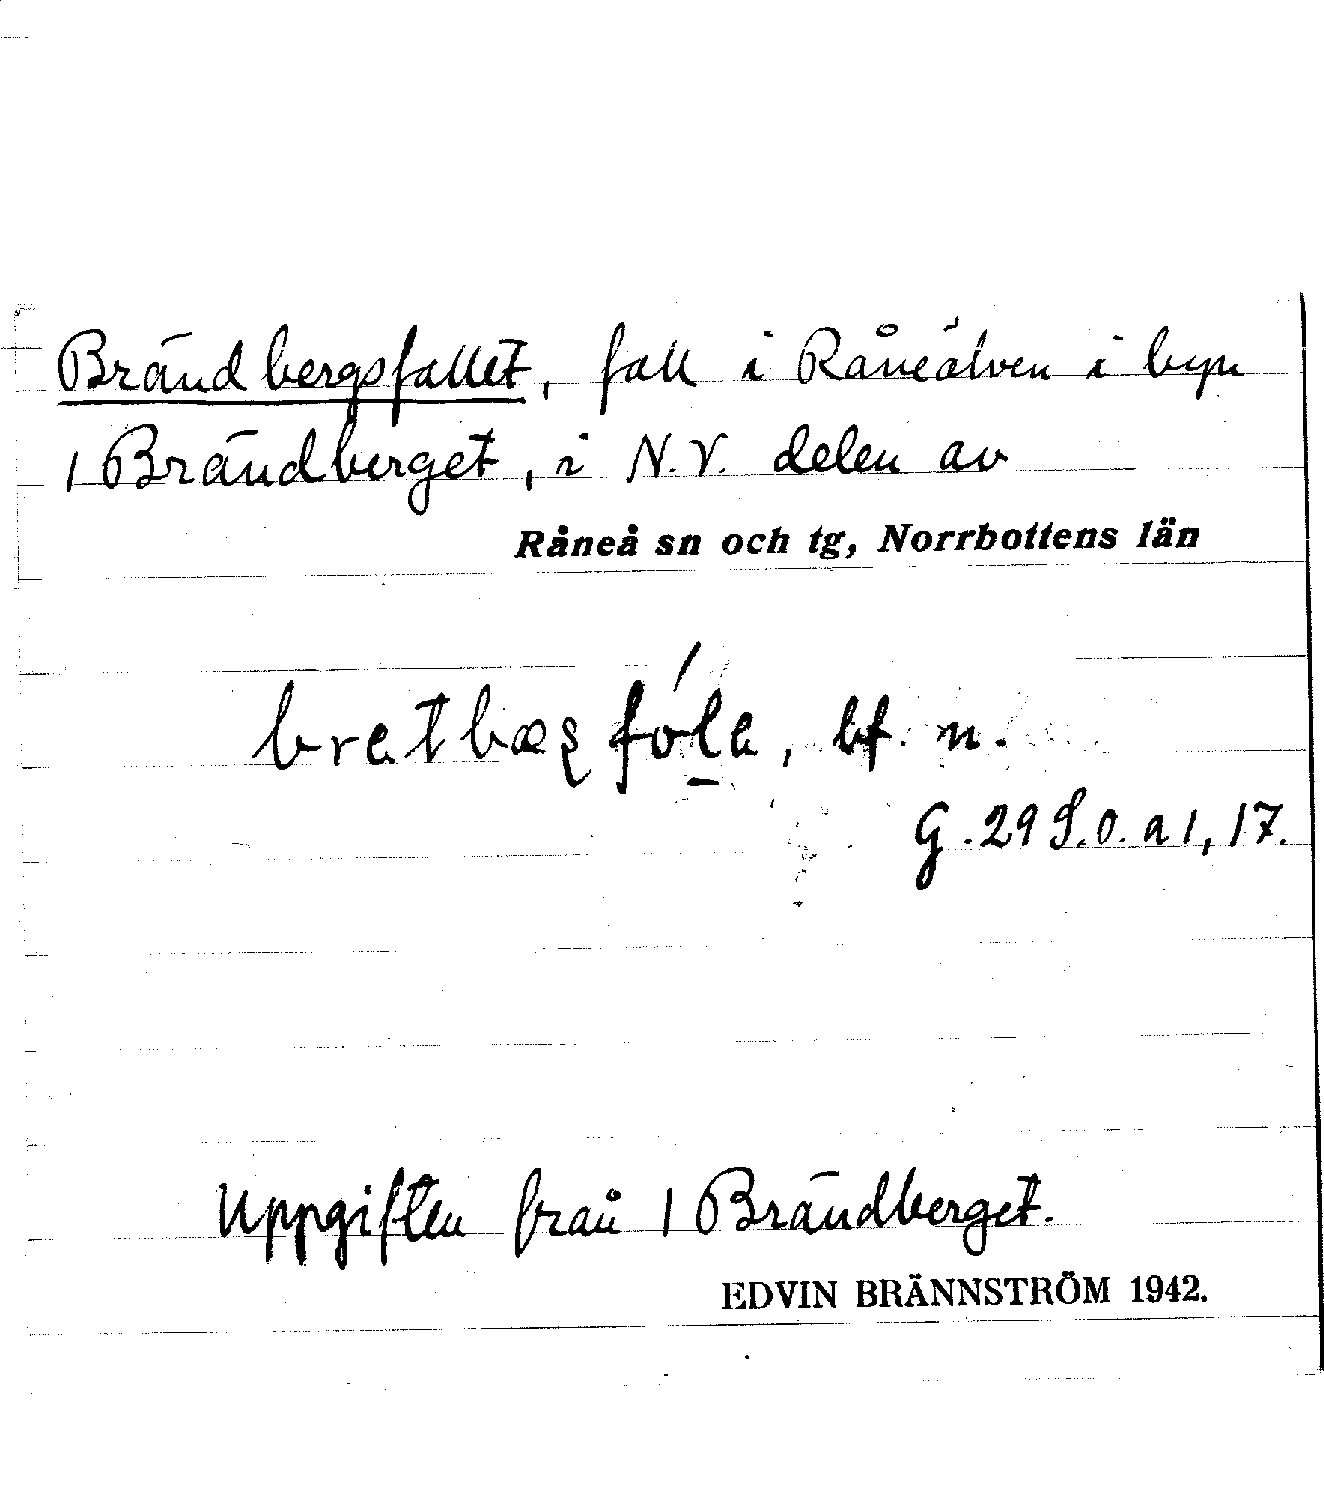 Brändbergsfallet, fall i Råneälven i byn
1 Brändberget, i N.V. delen av
Råneå sn och tg, Norrbottens län
bretbæʂfóla, bf. n.
G. 29 S.O. a 1, 17.
Uppgiften från 1 Brändberget.
EDVIN BRÄNNSTRÖM 1942.